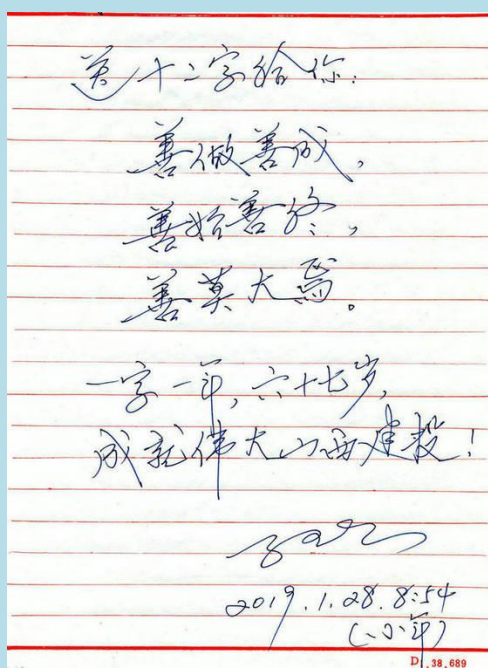 送十二字给你:
善做善成,
善始善终,
善莫大焉。
一字一年,六十七岁,
成就伟大山西建投!
2019.1.28.8:54
(小年)
D1.38.689